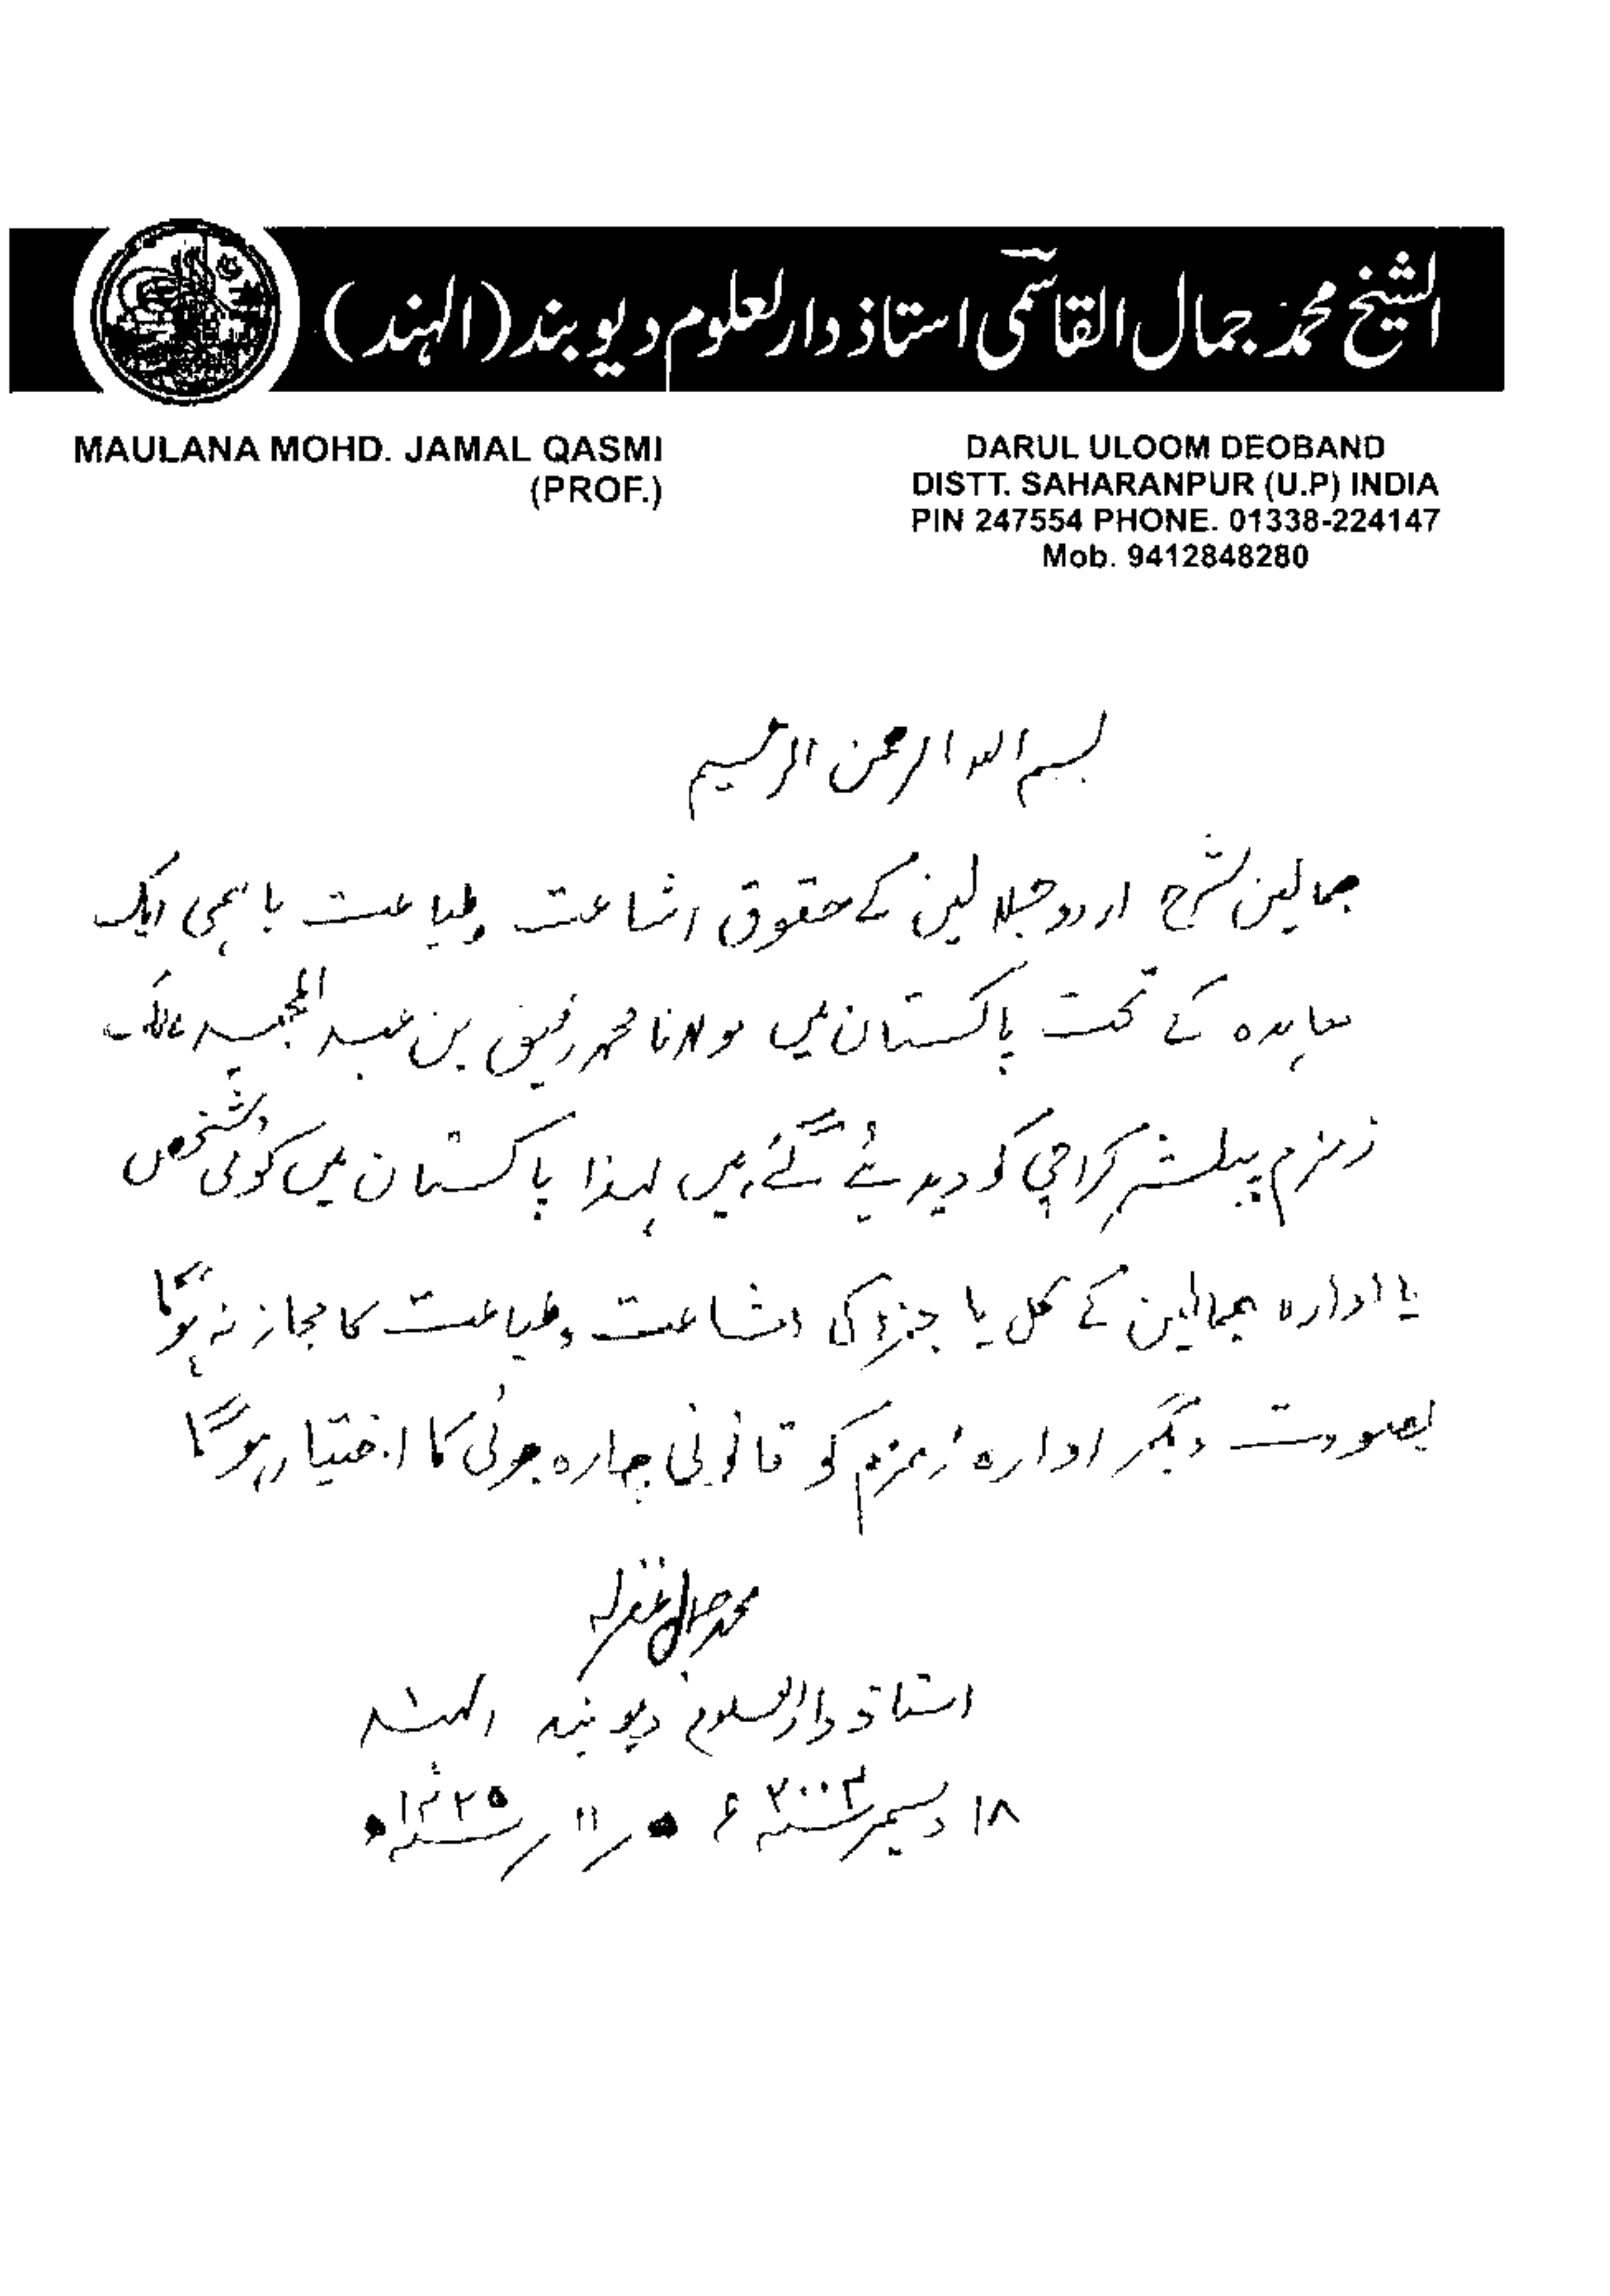 الشیخ محمد جمال القاسمی استاذ دارالعلوم دیوبند (الهند)
MAULANA MOHD. JAMAL QASMI
(PROF.)
DARUL ULOOM DEOBAND
DISTT. SAHARANPUR (U.P) INDIA
PIN 247554 PHONE. 01338-224147
Mob. 9412848280
بسم اللہ الرحمن الرحیم
جمالین شرح اردو جلالین کے حقوق اشاعت وطباعت باہمی ایک
معاہدہ کے تحت پاکستان میں مولانا محمد رفیق بن عبد المجید مالک
زمزم پبلشر کراچی کو دیدیئے گئے ہیں لہذا پاکستان میں کوئی شخص
یا ادارہ جمالین کے کل یا جزو کی اشاعت وطباعت کا مجاز نہ ہوگا
بصورت دیگر ادارہ زمزم کو قانونی چارہ جوئی کا اختیار ہوگا
محمد جمال غفرلہ
استاذ دارالعلوم دیوبند الہند
۱۸ دسمبر ء / ۱۱ /